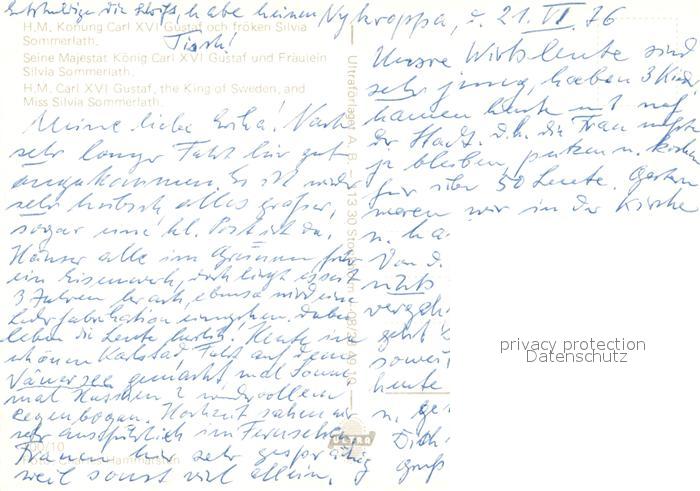 Entschuldige die Schrift, habe keinen Tisch!
Nykroppa, d. 21. VI. 76
H.M. Konung Carl XVI Gustaf och fröken Silvia
Sommerlath.
Seine Majestät König Carl XVI Gustaf und Fräulein
Silvia Sommerlath.
H.M. Carl XVI Gustaf, the King of Sweden, and
Miss Silvia Sommerlath.
Meine liebe Erika! Nach
sehr langer Fahrt hier gut
angekommen. Es ist wieder
sehr hübsch, alles größer,
sogar eine kl. Post ist da.
Häuser alle im Grünen, früher
ein Eisenwerk, doch liegt es seit
3 Jahren brach, ebenso wird eine
Lederfabrikation eingehen. Dabei
leben die Leute hier. Heute im
schönen Karlstad, Fahrt auf dem
Vänersee gemacht, mal Sonne
mal Huschen, 2 wundervollen
Regenbogen. Hochzeit sahen wir
sehr ausführlich im Fernsehen
Frauen hier sehr gesprächig
weil sonst viel allein,
Foto: Hammarsten
Ultraförlaget A.B.
ULTRA
Unsre Wirtsleute sind
sehr jung, haben 3 Kinder,
kamen heute mit nach
der Stadt. d.h. die Frau mußte
ja bleiben, putzen u. kochen
für über 50 Leute. Gestern
waren wir in der Kirche
u. ha
Von d.
nichts
vergeh
geht
soweit
heute
u. ge
Dich
Gruß
privacy protection
Datenschutz